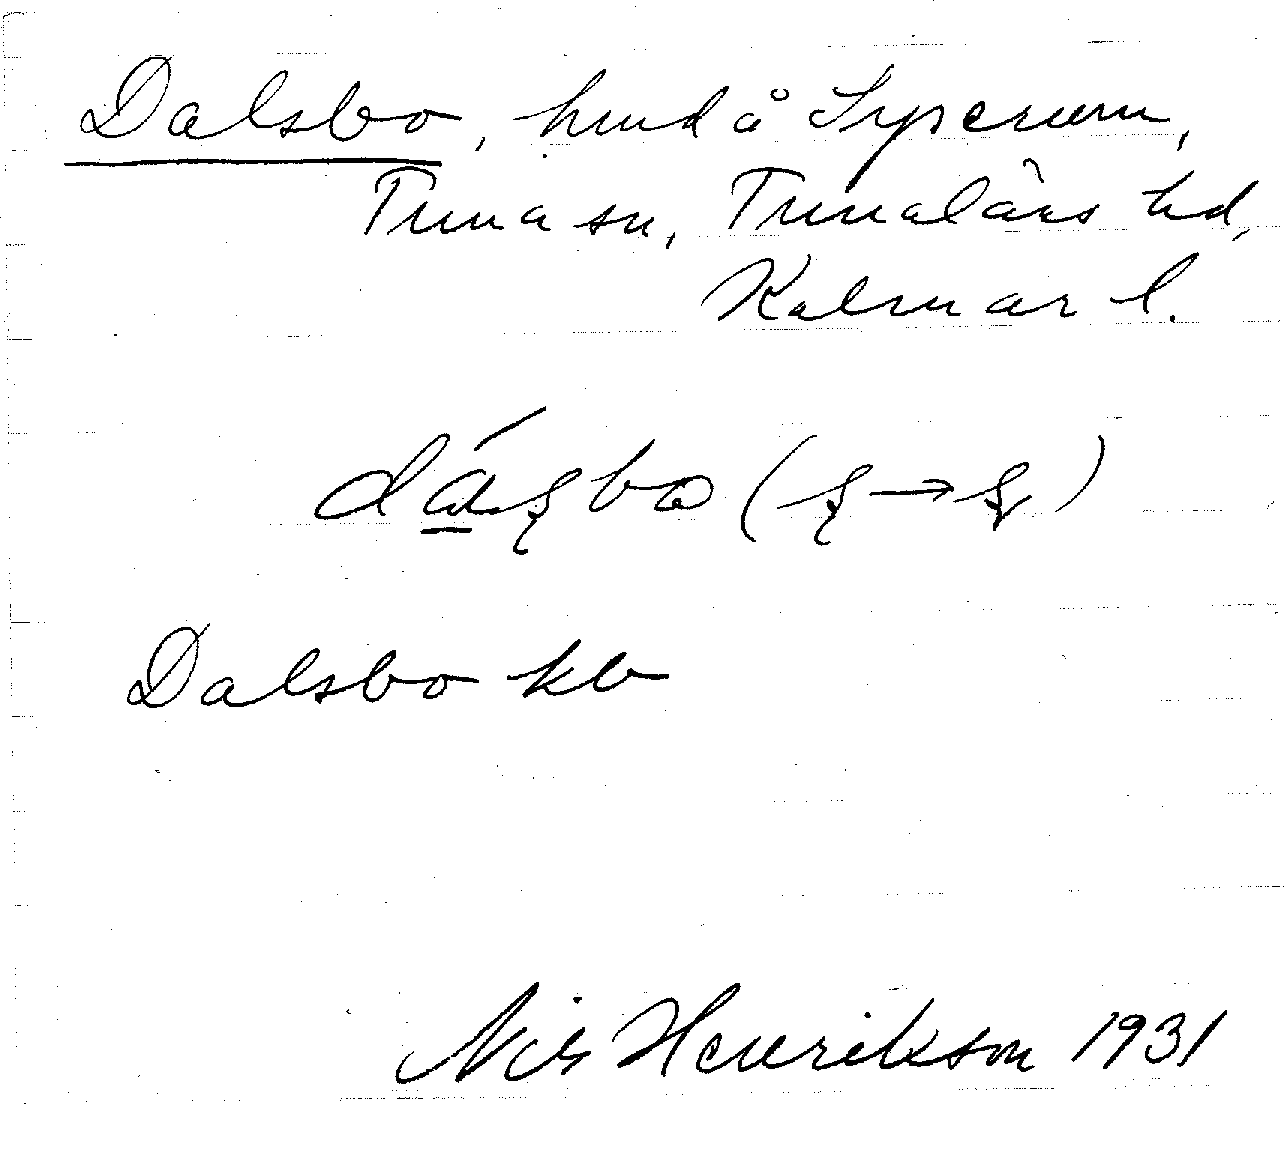 Dalsbo, hmd å Syserum,
Tuna sn, Tunaläns hd,
Kalmar l.
Dalsbo kb
Nils Henrikson 1931